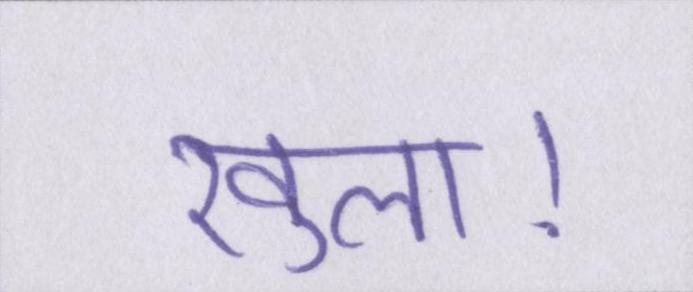 खुला!